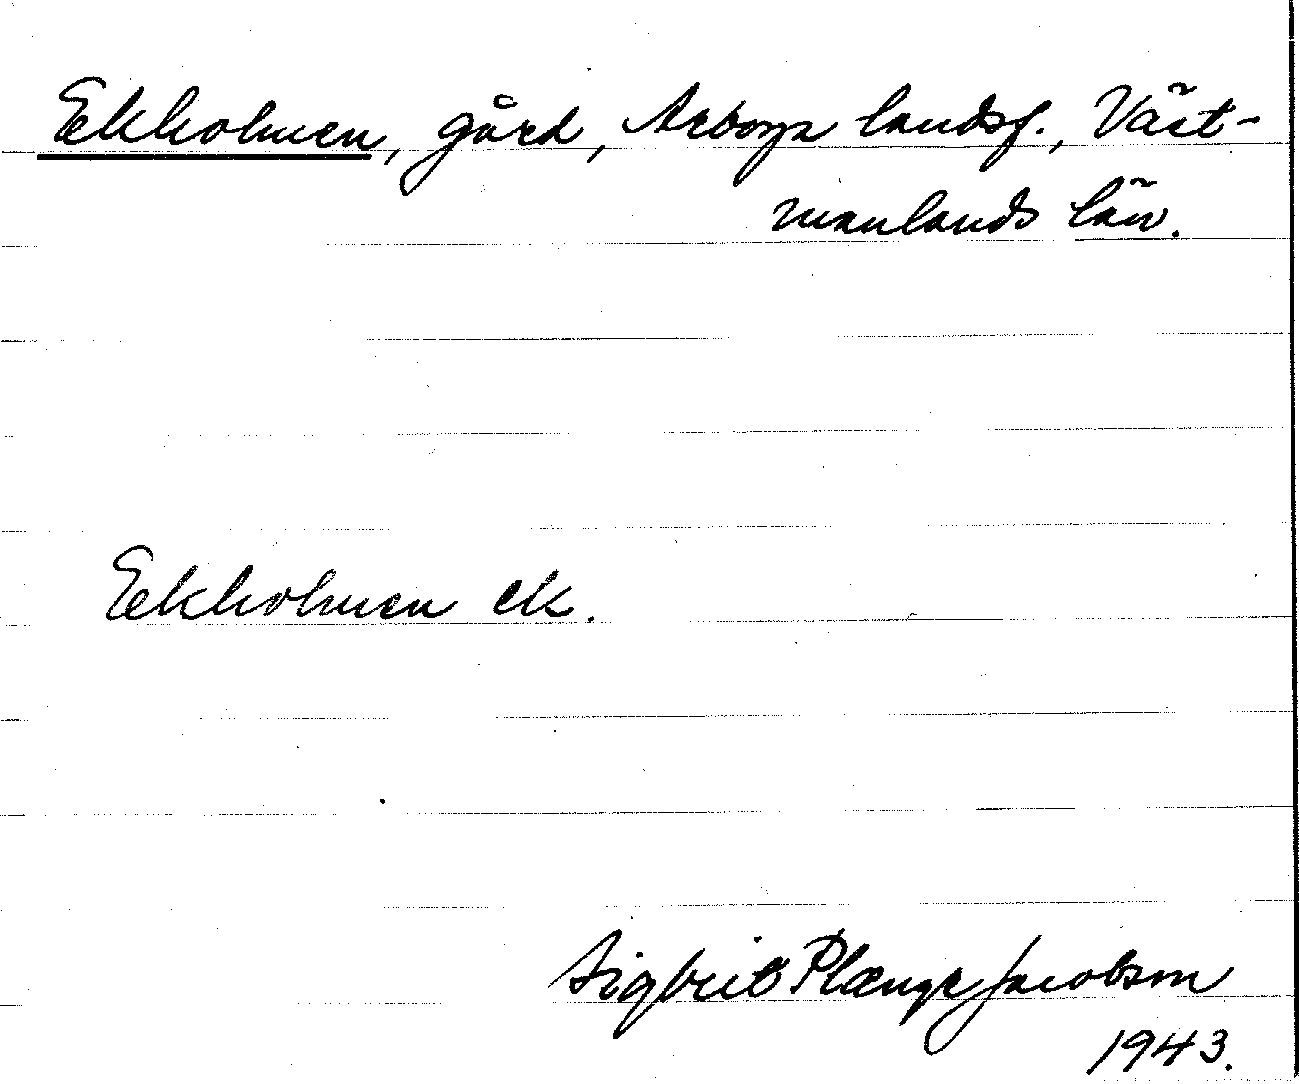 Ekholmen, gård, Arboga landsf., Väst-
manlands län.
Ekholmen ek.
Sigbrit Plænge Jacobson
1943.